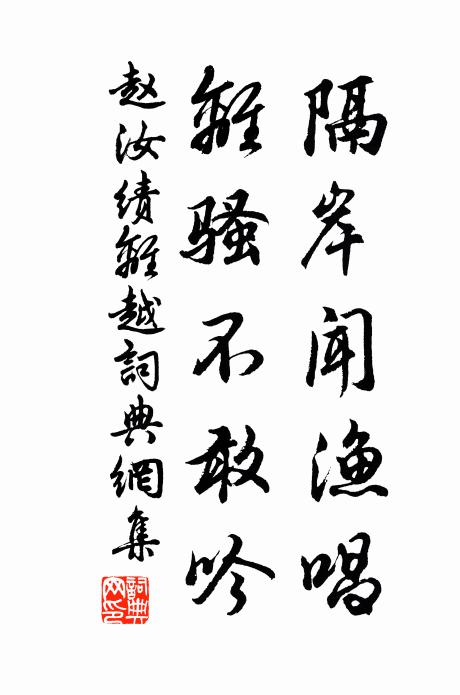 隔岸闻渔唱
離骚不敢吟
赵汝绩離越詞典網集
詞典网印